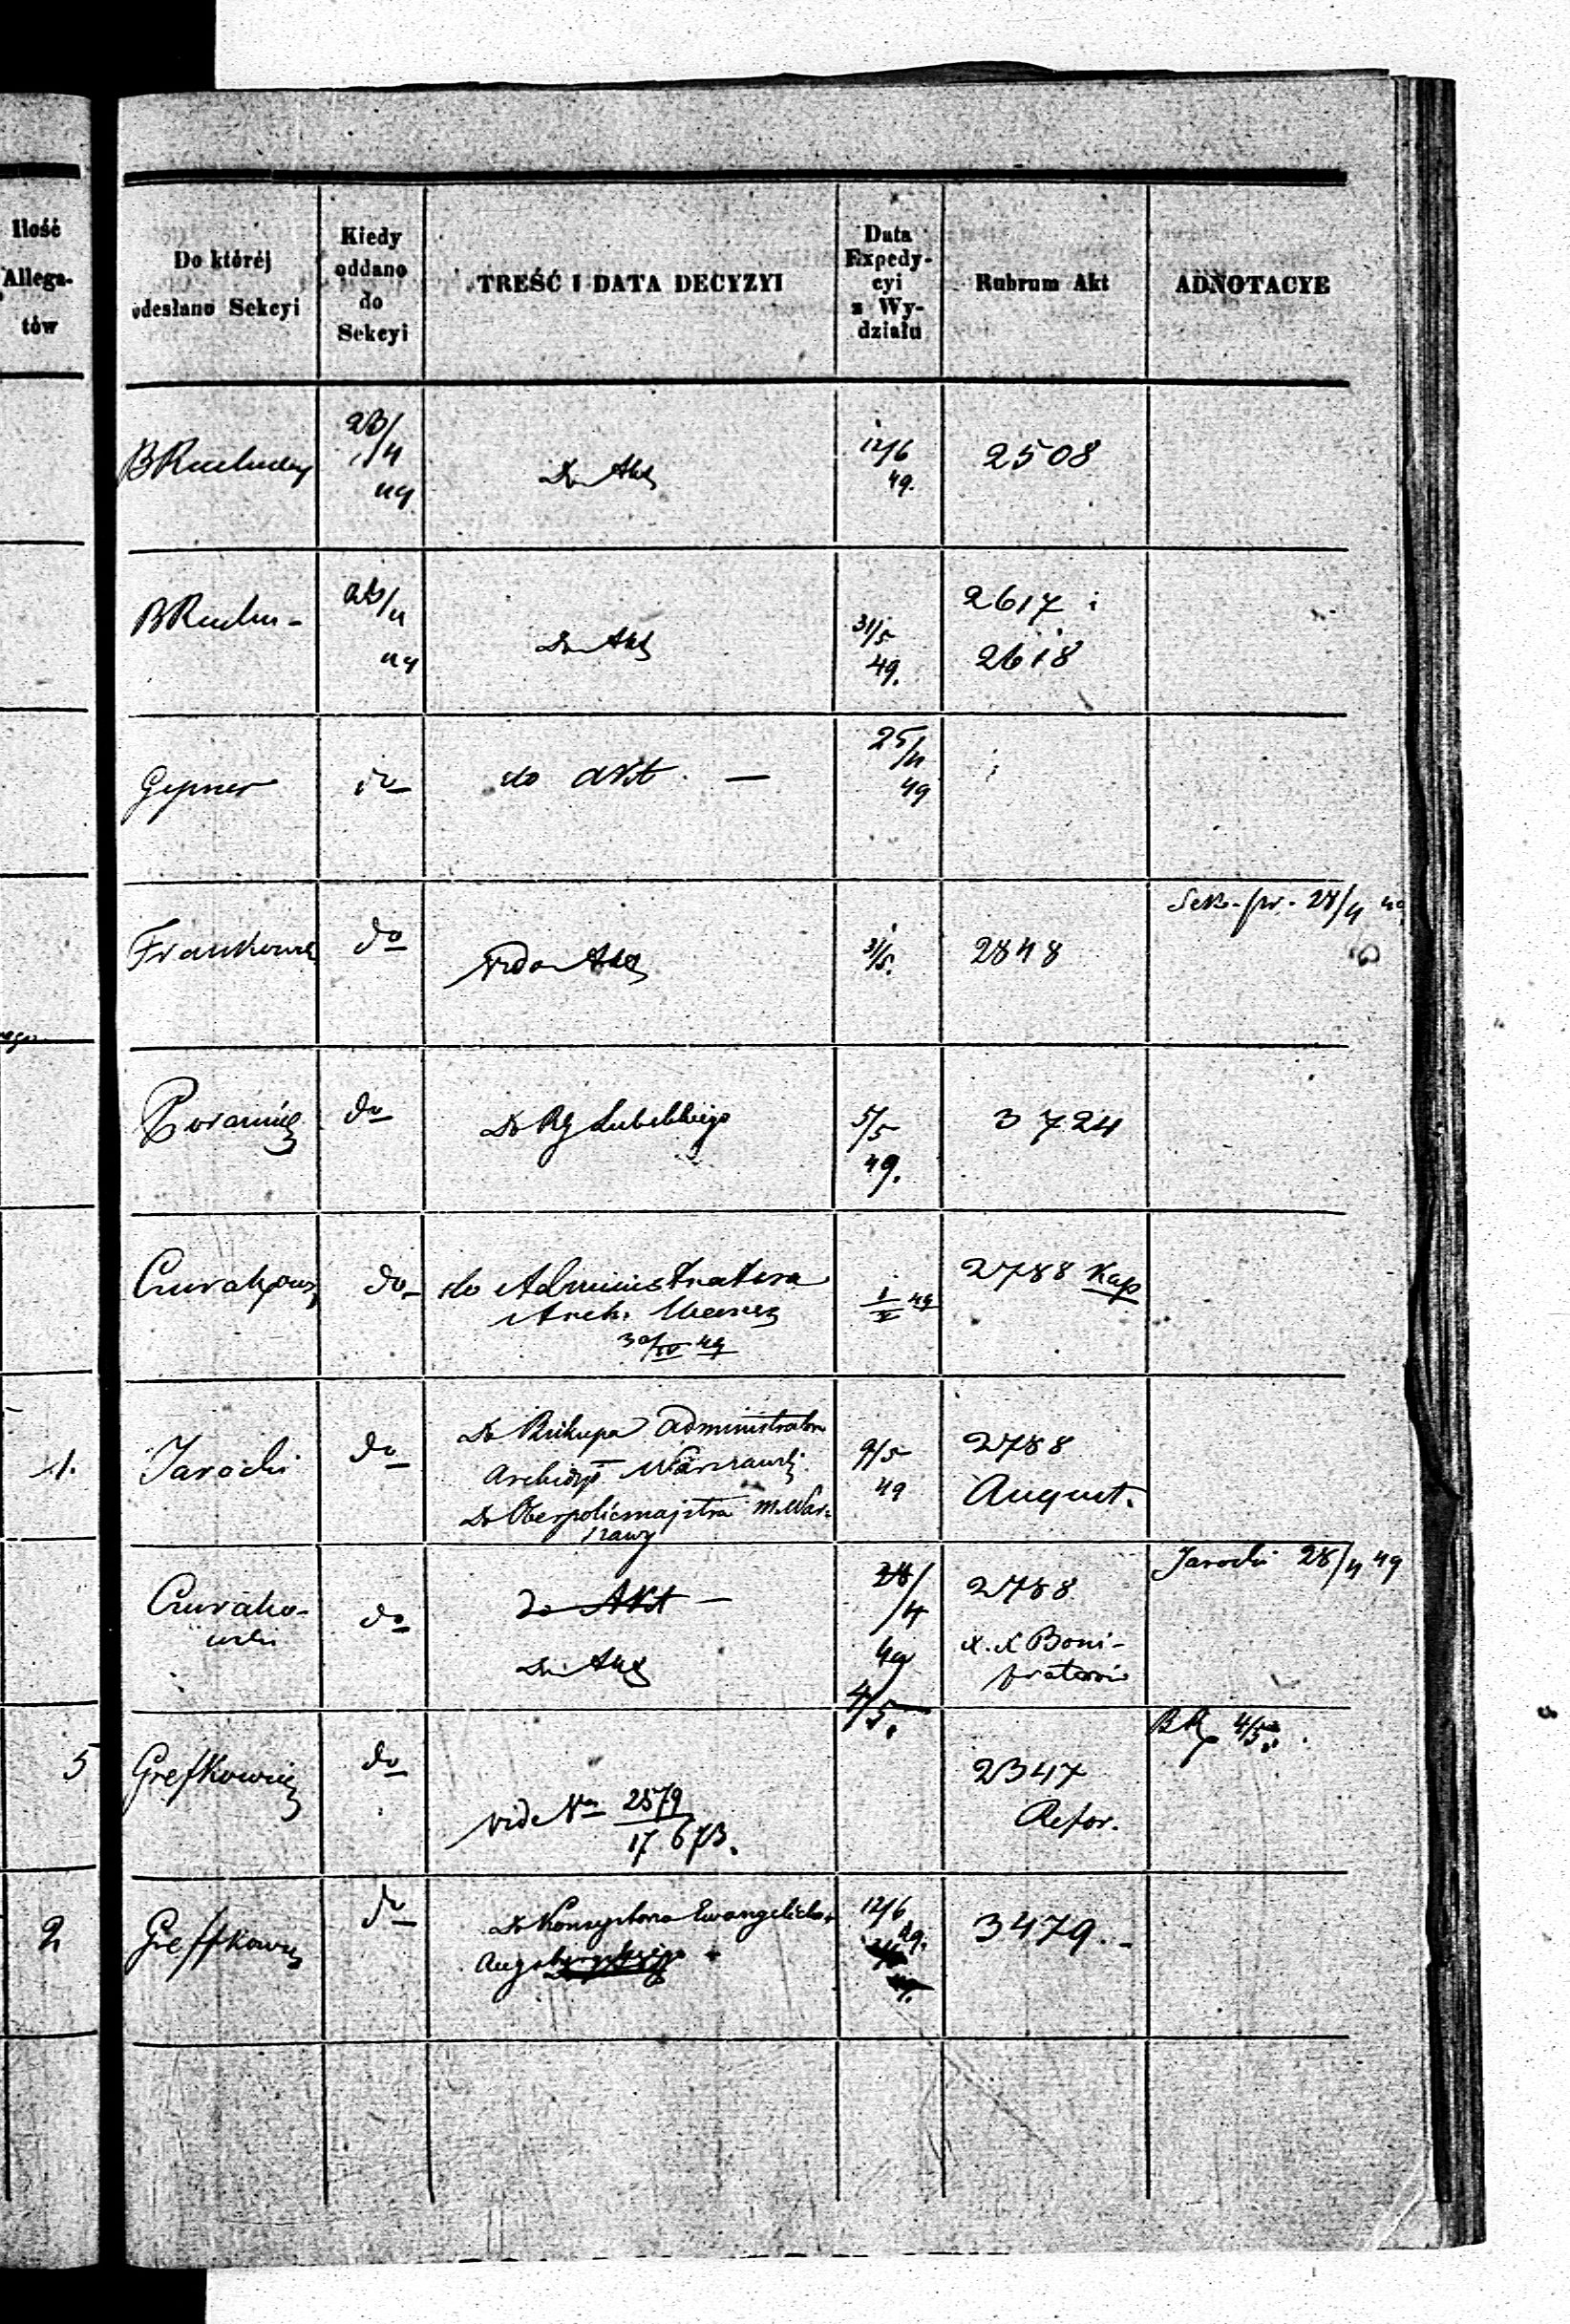 Ilość
Allega-
tów
Do któréj
odesłano Sekcyi
Kiedy
oddano
do
Sekcyi
TREŚĆ I DATA DECYZYI
Data
Expedy-
cyi
z Wy-
działu
Rubrum Akt
ADNOTACYE
Do Akt
12/6
49.
2508
Do Akt
31/5
49.
2617 i
2618
Gepner
do
do akt. —
25/4
49
do
Do Akt
31/5.
2848
28/4 49
do
Do RG Lubelskiego
5/5
49.
3724
do
do Administratora
Arch. Warsz
30/IV 49
I/V 49
2788 Kap
1.
Jarocki
do
Do Biskupa Administratora
Archidyi Warszawski.
Do Oberpolicmajstra M. War-
szawy
9/5
49
2788
August.
do
do Akt —
Do Akt
28/4
49
4/5.
2788
x. x Boni-
fratrów
Jarocki 28/4 49
5
Grefkowicz
do
vide No 2579
17.673.
2347
Refor.
4/5
2
Greffkowicz
do
Do Konsystorza Ewangelicko
12/6
49.
3479.